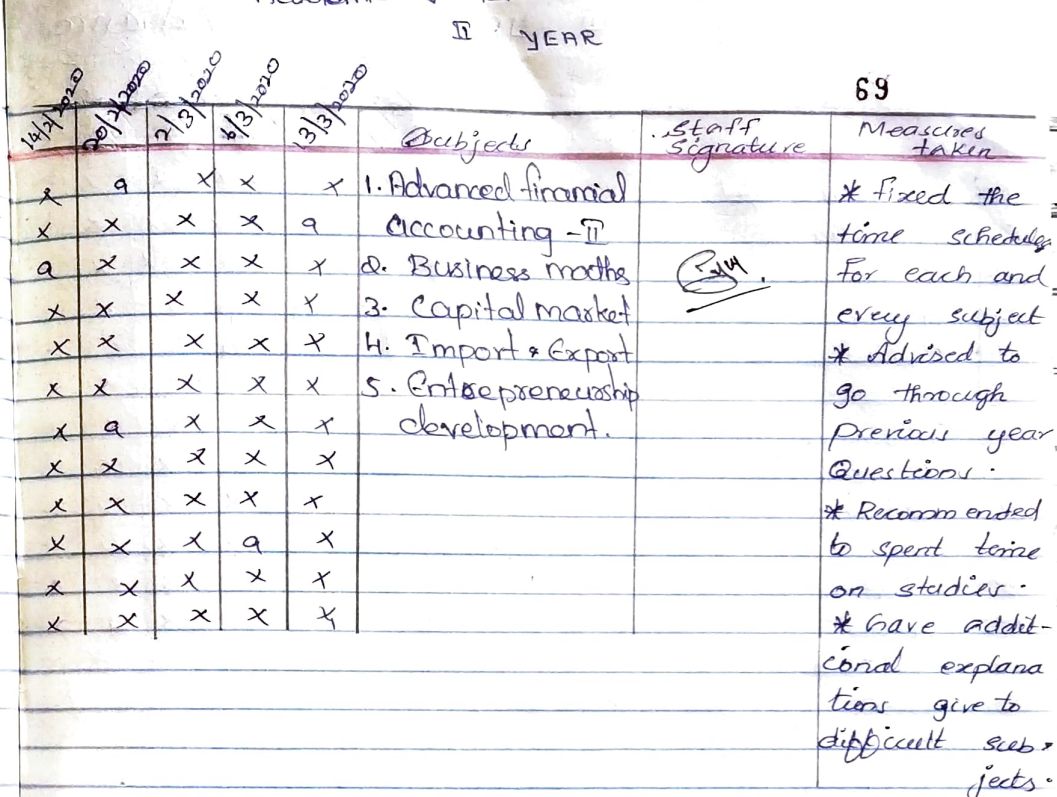 II YEAR
69
14/2/2020 20/2/2020 2/3/2020 6/3/2020 13/3/2020 Subjects Staff Signature Measures taken
x a x x x 1. Advanced financial * fixed the
x x x x a accounting - II time schedules
a x x x x 2. Business maths for each and
x x x x x 3. Capital market every subject
x x x x x 4. Import & Export * Advised to
x x x x x 5. Entrepreneurship go through
x a x x x development. previous year
x x x x x Questions.
x x x x x * Recommended
x x x a x to spent time
x x x x x on studies.
x x x x x * Gave addit-
ional explana
tions give to
difficult sub-
jects.